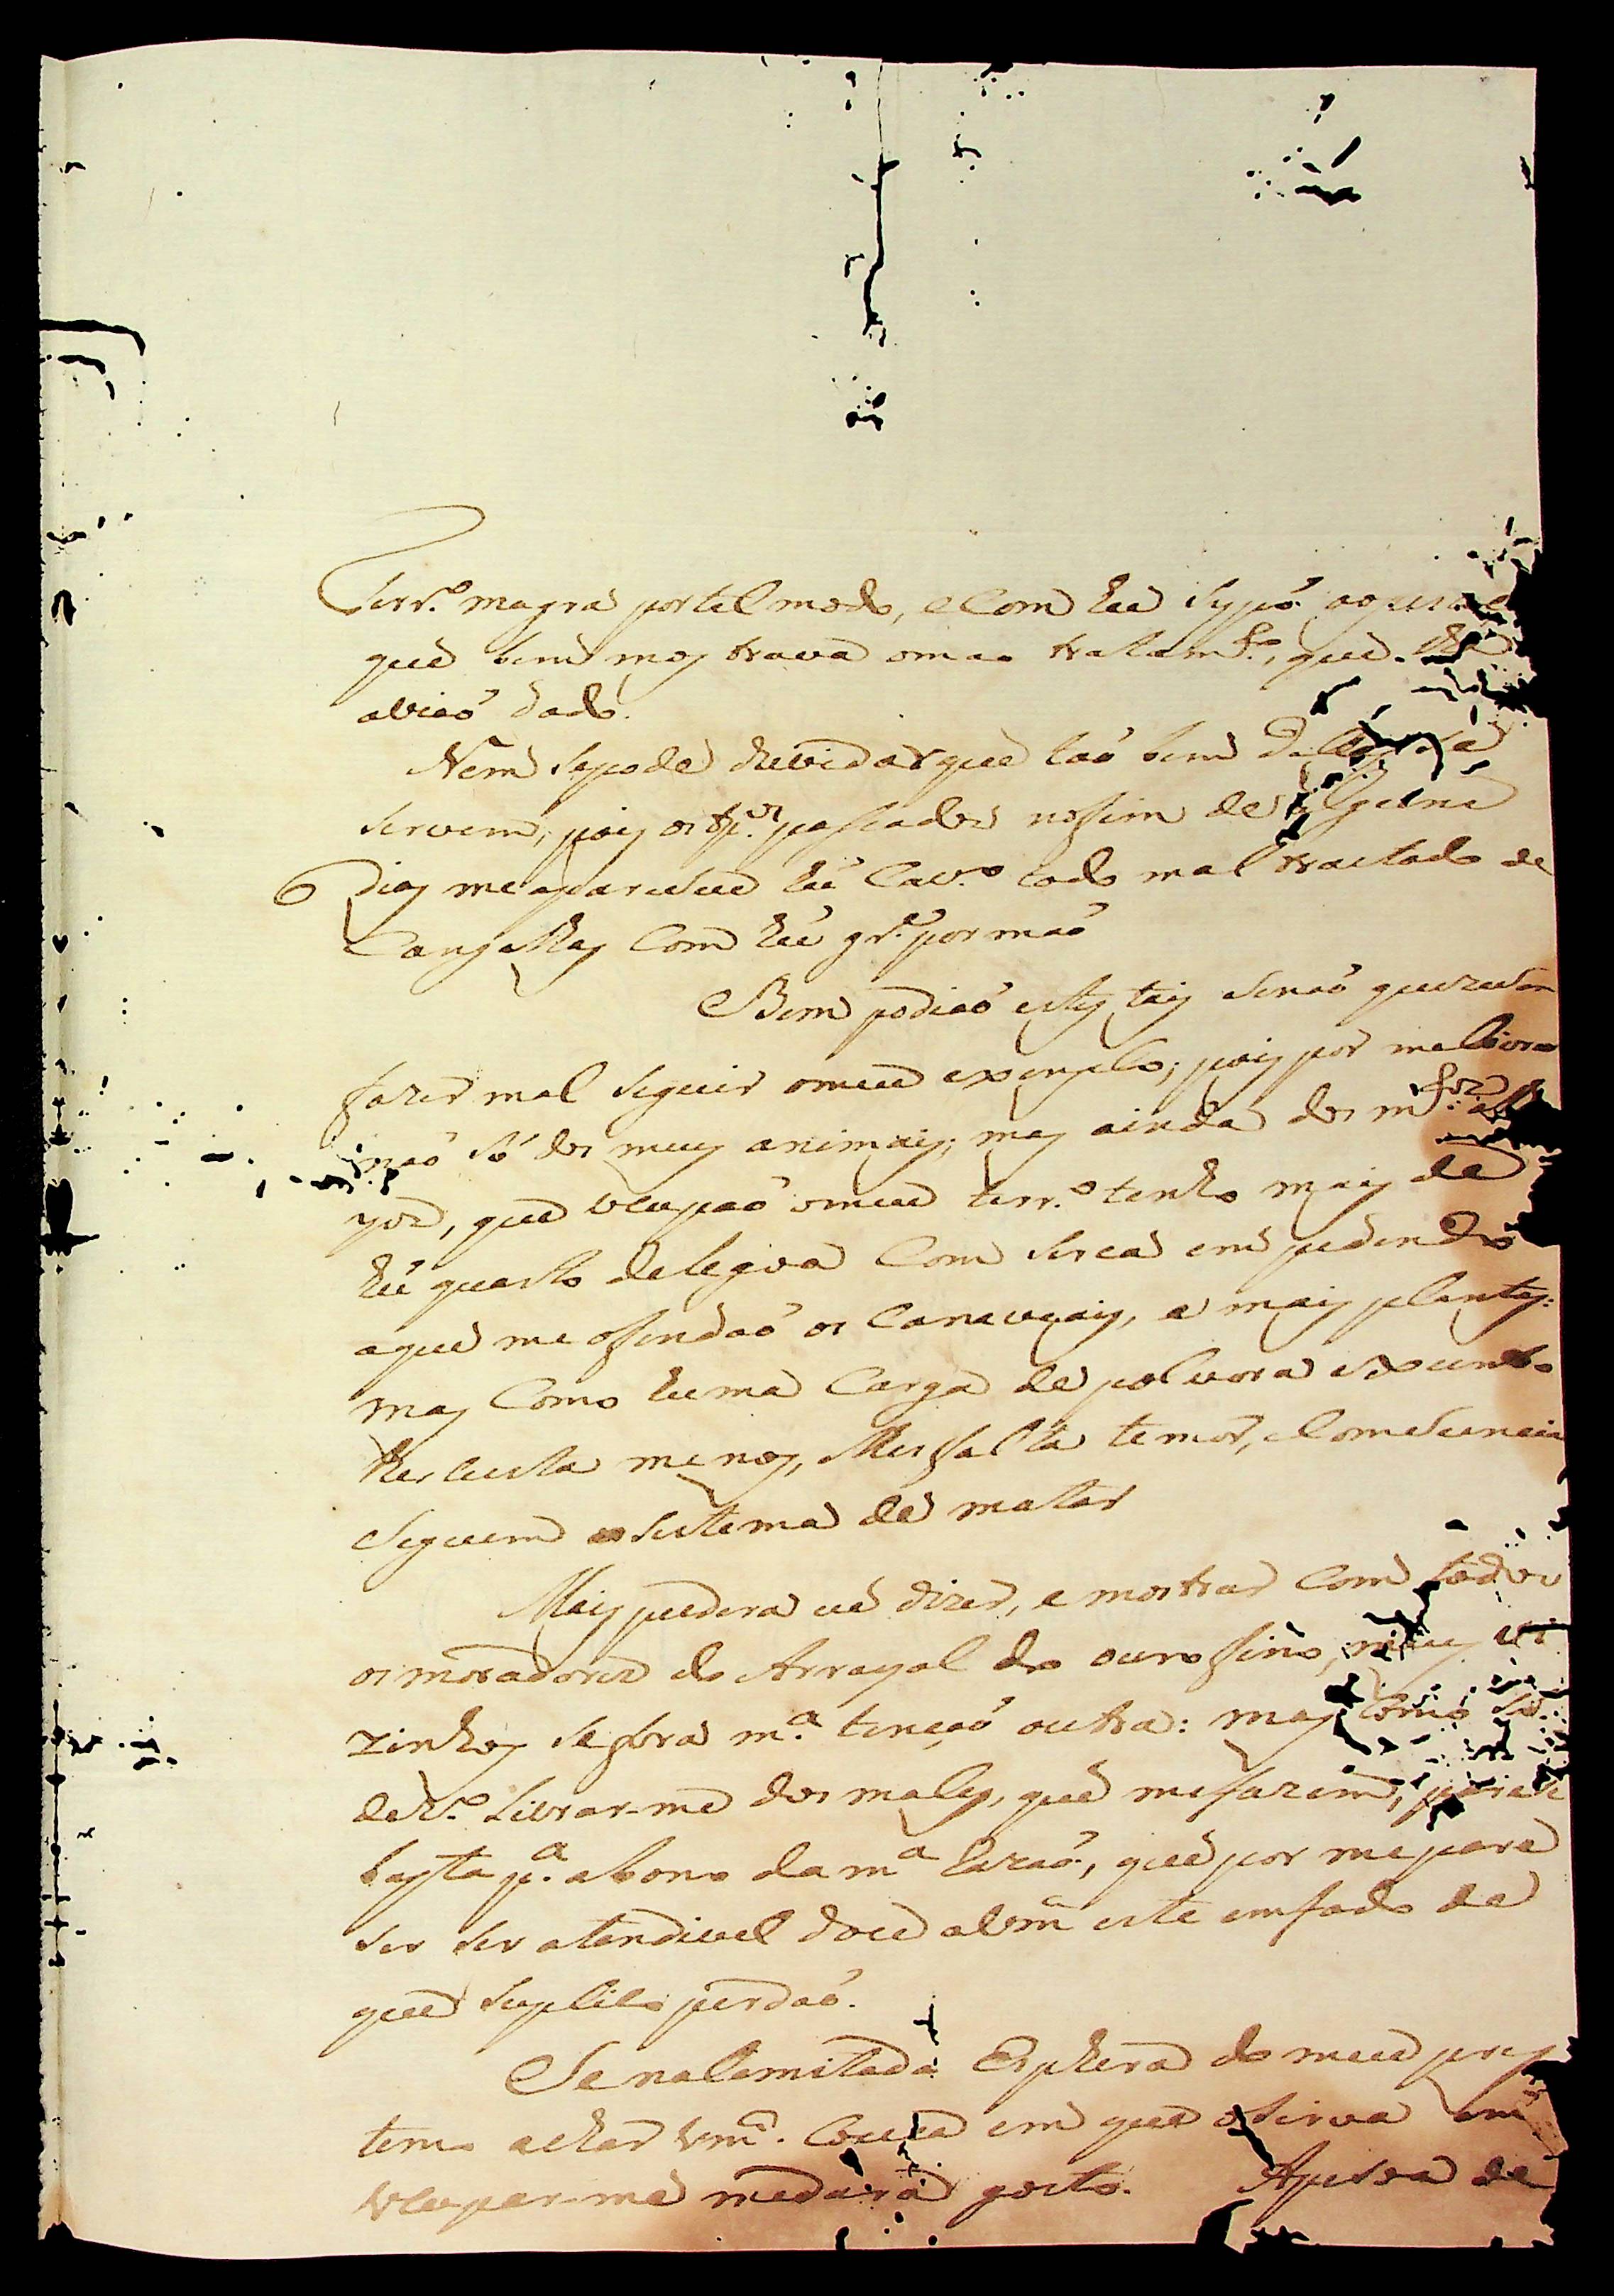 terr.º magra por tal modo, e com hu sypó ao
que bem mos trava omao tratam.to, que
aviaó dado.
Nem sepode duvidar que taó bem
servem; pois os passados nofim de
6 dias me apareseu hú Cav.º todo mal tractado de
Cangalhas com hú gr.e por maó
Bem podiaó estes tais senaó quizesem
fazer mal seguir omeu exemplo; pois por
naó só dos meus animais; mas ainda dos
que ocupaó omeu terr.º tenho mais de
hú quarto delegoa com serca empedindo
aque me ofendaó os Canaveais, e mais plantas:
mas Como huma Carga de polvora echumbo
lhes custa menos, lhes falta temor, e
seguem osistema de matar
Mais pudera eu dizer, e mostrar com todos
os moradores do Arrayal do ourofino, meus vi
zinhos sefora m.a tençaó outra: mas como só
dez.º livrar-me dos males, que mefazem,
basta p.a abono dam.a razaó, que por mepare
ser ser atendivel dou avm.ce este emfado de
que suplico perdaó.
Se nalemitada Esphera do meu pres
temo achar Vm.ce Couza em que osirva em
ocupar-me medará gosto. Apesoa de